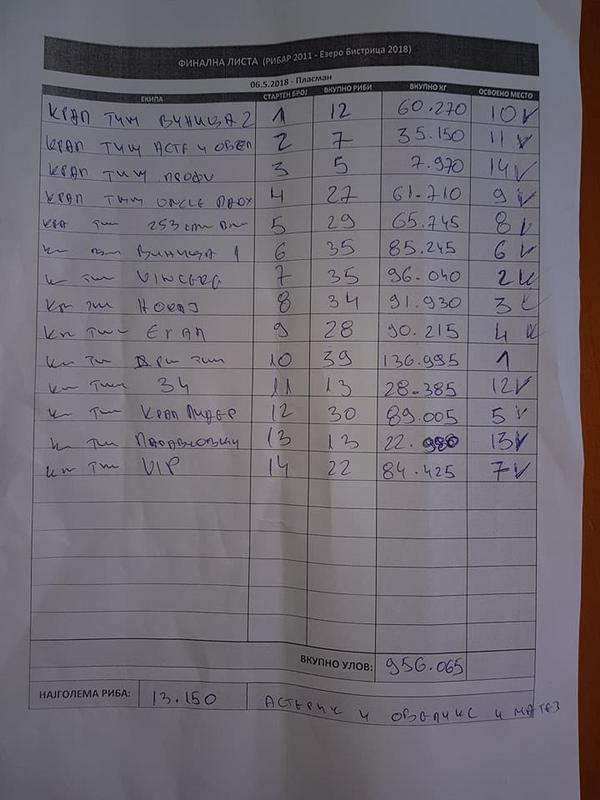 ФИНАЛНА ЛИСТА (РИБАР 2011 - Езеро Бистрица 2018)
06.5.2018 - Пласман
ЕКИПА СТАРТЕН БРОЈ ВКУПНО РИБИ ВКУПНО КГ ОСВОЕНО МЕСТО
КРАП ТИМ ВИНИЦА 2 1 12 60.270 10
КРАП ТИМ АСТЕ И ОБЕЛ 2 7 35.150 11
КРАП ТИМ ПРОФИ 3 5 7.970 14
КРАП ТИМ UNCLE 4 27 61.710 9
ТИМ 253 5 29 65.745 8
ВИНИЦА 1 6 35 85.245 6
ТИМ 7 35 96.040 2
ТИМ 8 34 91.930 3
ТИМ 9 28 90.215 4
ТИМ 10 39 136.995 1
ТИМ 34 11 13 28.385 12
ТИМ КРАП ЛИДЕР 12 30 89.005 5
ТИМ 13 13 22. 13
ТИМ VIP 14 22 84.425 7
ВКУПНО УЛОВ: 956.065
НАЈГОЛЕМА РИБА: 13.150 АСТЕРИКС И ОБЕЛИКС И